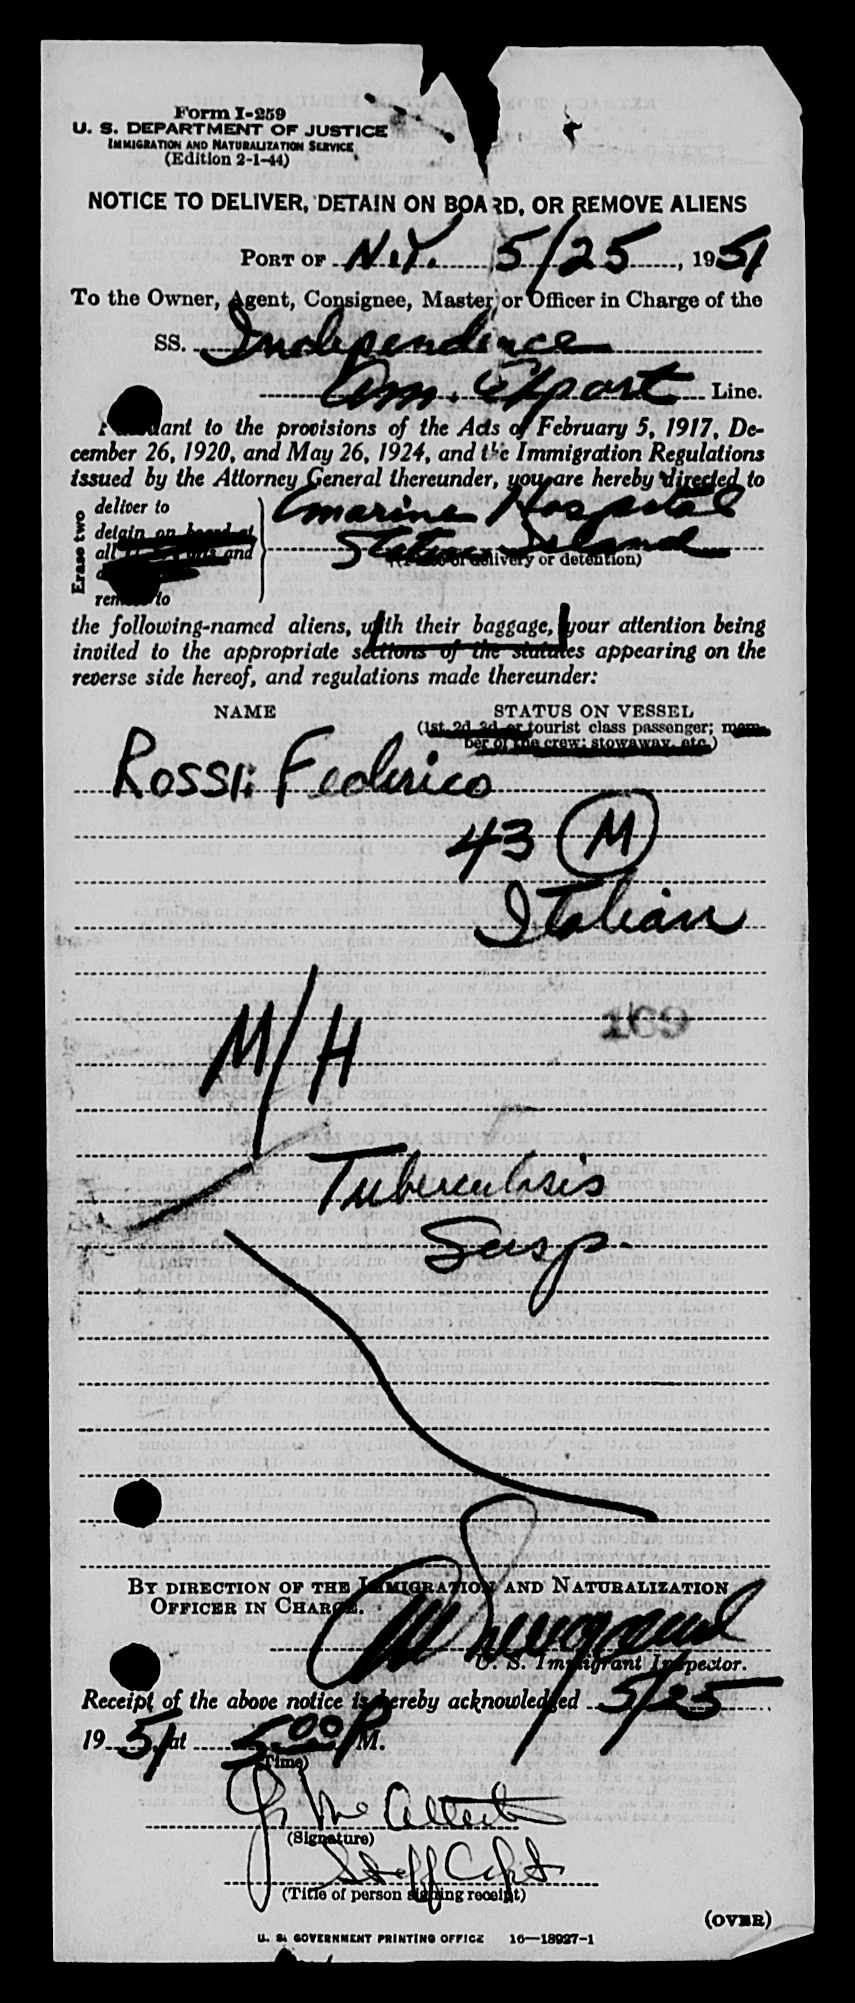 Form I-259
U. S. DEPARTMENT OF JUSTICE
IMMIGRATION AND NATURALIZATION SERVICE
(Edition 2-1-44)
NOTICE TO DELIVER, DETAIN ON BOARD, OR REMOVE ALIENS
PORT OF N.Y. 5/25, 1951
To the Owner, Agent, Consignee, Master, or Officer in Charge of the
SS. Independence
Am. Export Line.
Pursuant to the provisions of the Acts of February 5, 1917, De-
cember 26, 1920, and May 26, 1924, and the Immigration Regulations
issued by the Attorney General thereunder, you are hereby directed to
Erase two
deliver to
detain on board at
all and
remove to
Marine Hospital
Staten Island
(Place of delivery or detention)
the following-named aliens, with their baggage, your attention being
invited to the appropriate sections of the statutes appearing on the
reverse side hereof, and regulations made thereunder:
NAME
STATUS ON VESSEL
(1st, 2d, 3d, or tourist class passenger; mem-
ber of the crew; stowaway, etc.)
Rossi; Federico
43 M
Italian
169
M/H
Tuberculosis
Susp.
BY DIRECTION OF THE IMMIGRATION AND NATURALIZATION
OFFICER IN CHARGE.
U. S. Immigrant Inspector.
Receipt of the above notice is hereby acknowledged 5/25
1951, at 5:00 P M.
(Time)
(Signature)
Staff Capt
(Title of person signing receipt)
(OVER)
U. S. GOVERNMENT PRINTING OFFICE 16—18927-1